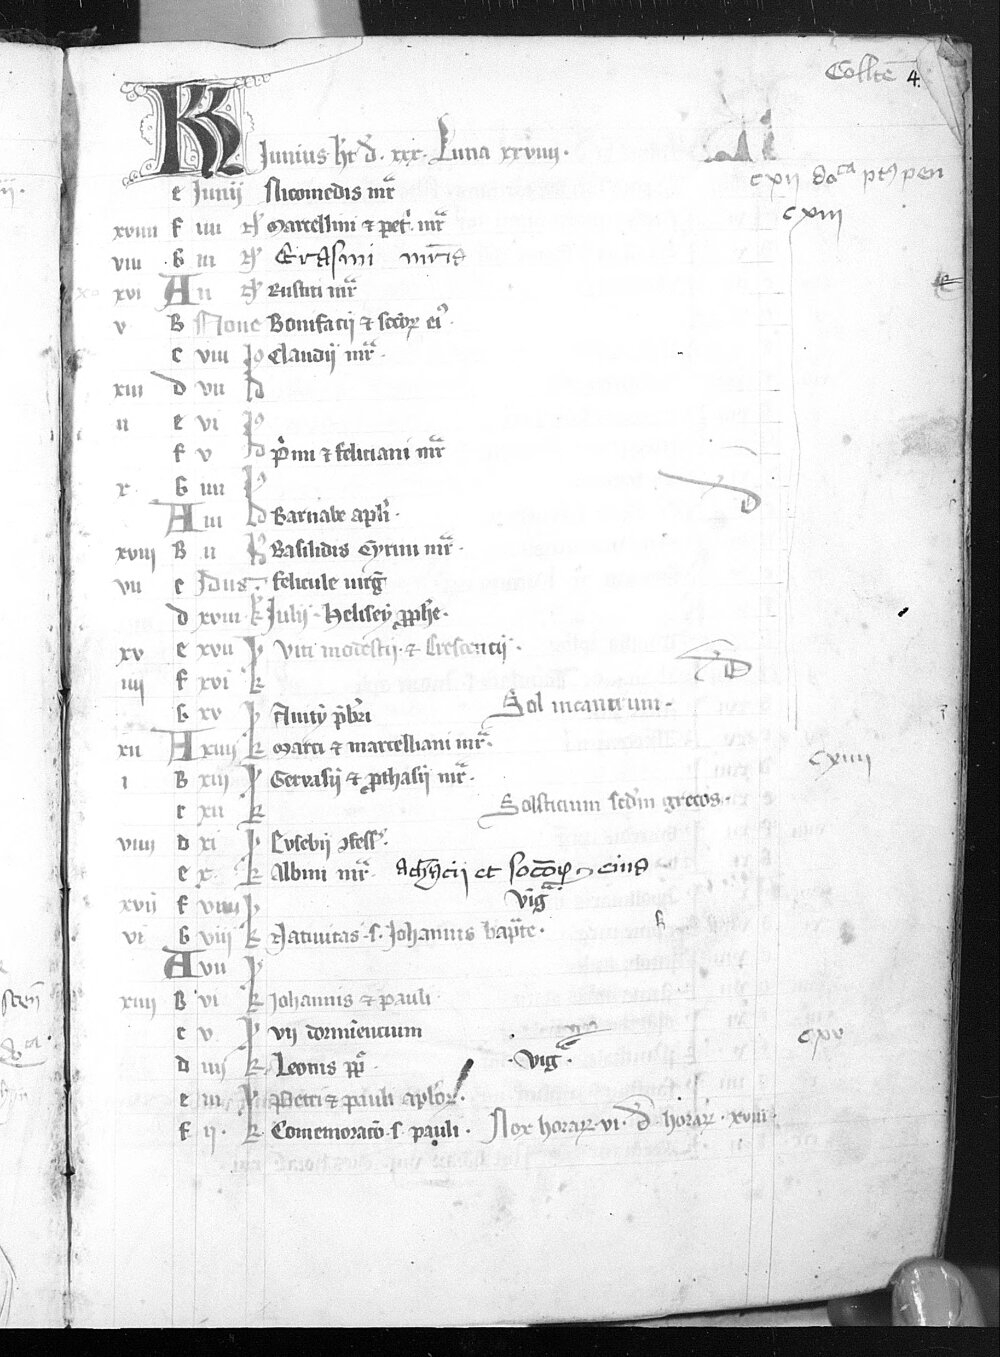 Collecte 4.
KL Junius ht d. xxx. Luna xxviiii.
cxii doca pt9 pen
e Junij Nicomedis mr
cxiii
xviiii f iiii N Marcellini & pet. mr
viii G iii N Erasmi mris
xvi A ii N Rustici mr
v B None Bonifacij & socor ei9.
c viii Id Claudij mr.
xiii d vii Id
ii e vi Id
f v Id Pmi & feliciani mr
x G iiii Id
d
A iii Id Barnabe apli.
xviii B ii Id Basilidis Cyrini mr.
vii c Idus. felicule virg
d xviii. kl Julij. Helisey pphe.
xv e xvii kl Viti modesti. & Crescencij.
d
iiii f xvi kl
G xv kl Aviti pbri Sol in cancrum.
xii A xiiii kl Marci & marcelliani mr.
cxiiii
i B xiii kl Gervasij & pthasij mr.
c xii kl Solsticium scdm grecos.
viiii d xi kl Eusebij 9fess.
e x kl Albini mr. achacij et socor eius
xvii f viiii kl vig
vi G viii kl Nativitas s. Johannis bapte.
A vii kl
xiiii B vi kl Johannis & pauli
c v kl vii dormiencium
cxv
d iiii kl Leonis pp. vig.
e iii kl Petri & pauli aplor.
f ii. kl Comemorato s. pauli. Nox horar. vi. d. horar. xviii